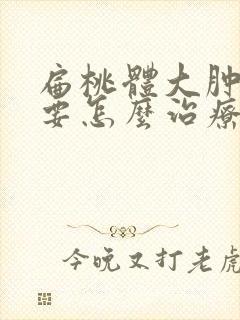 扁桃體大肿
要怎麼治療
今晚又打老虎